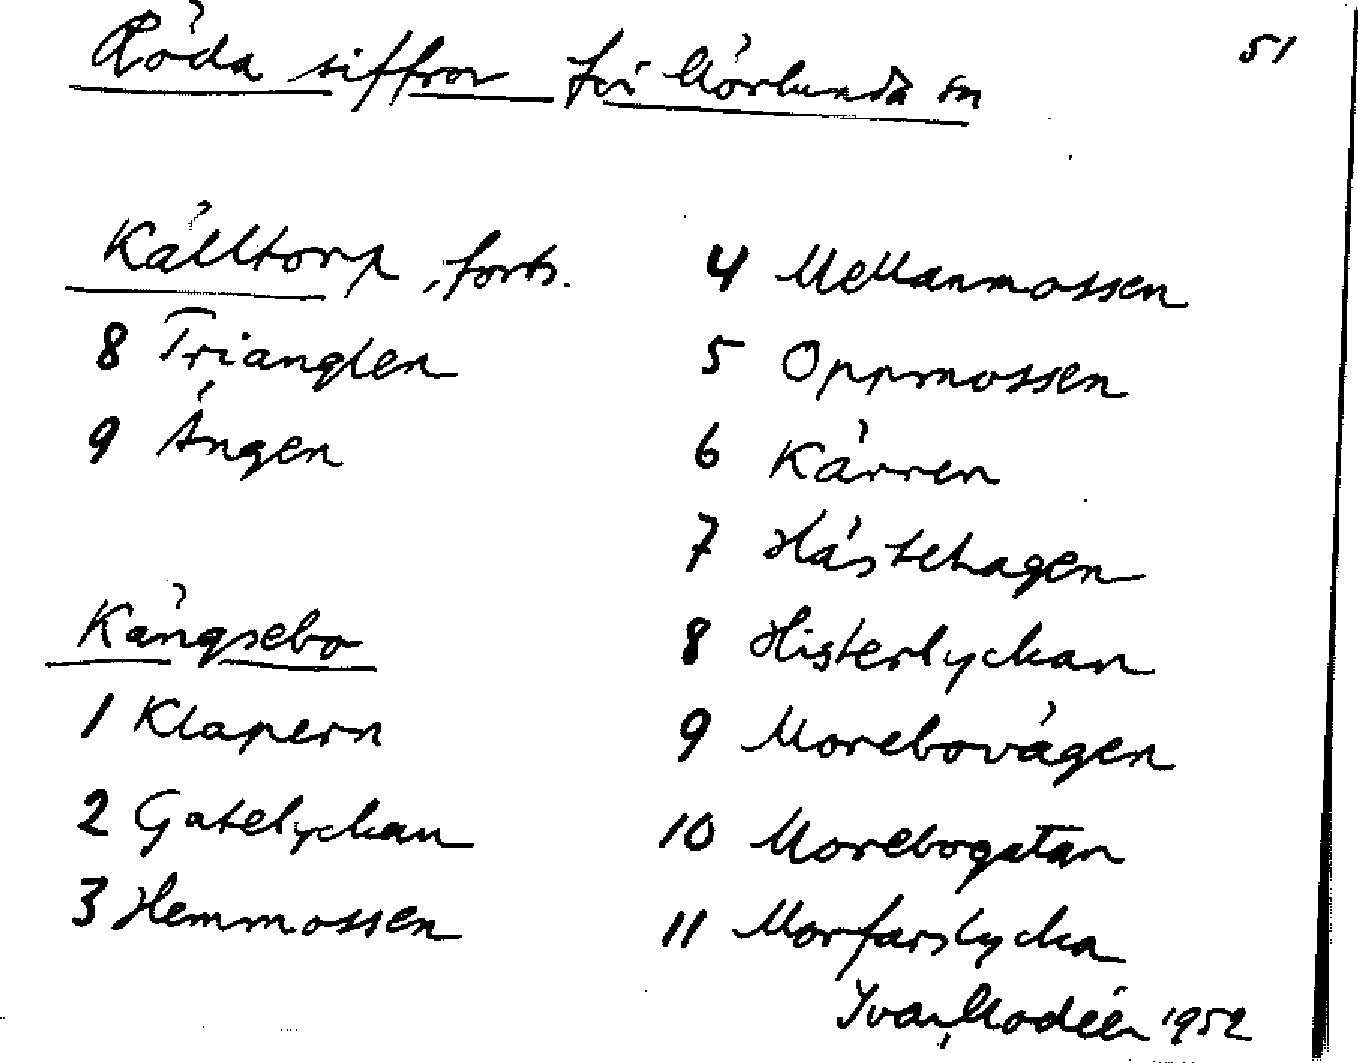 Röda siffror för Mörlunda sn
51
Källtorp, forts.
8 Trianglen
9 Ängen
Kängsebo
1 Klapern
2 Gatelyckan
3 Hemmossen
4 Mellanmossen
5 Oppmossen
6 Kärren
7 Hästehagen
8 Histerlyckan
9 Morebovägen
10 Morebogatan
11 Morfarslycka
Ivar Modéer 1952